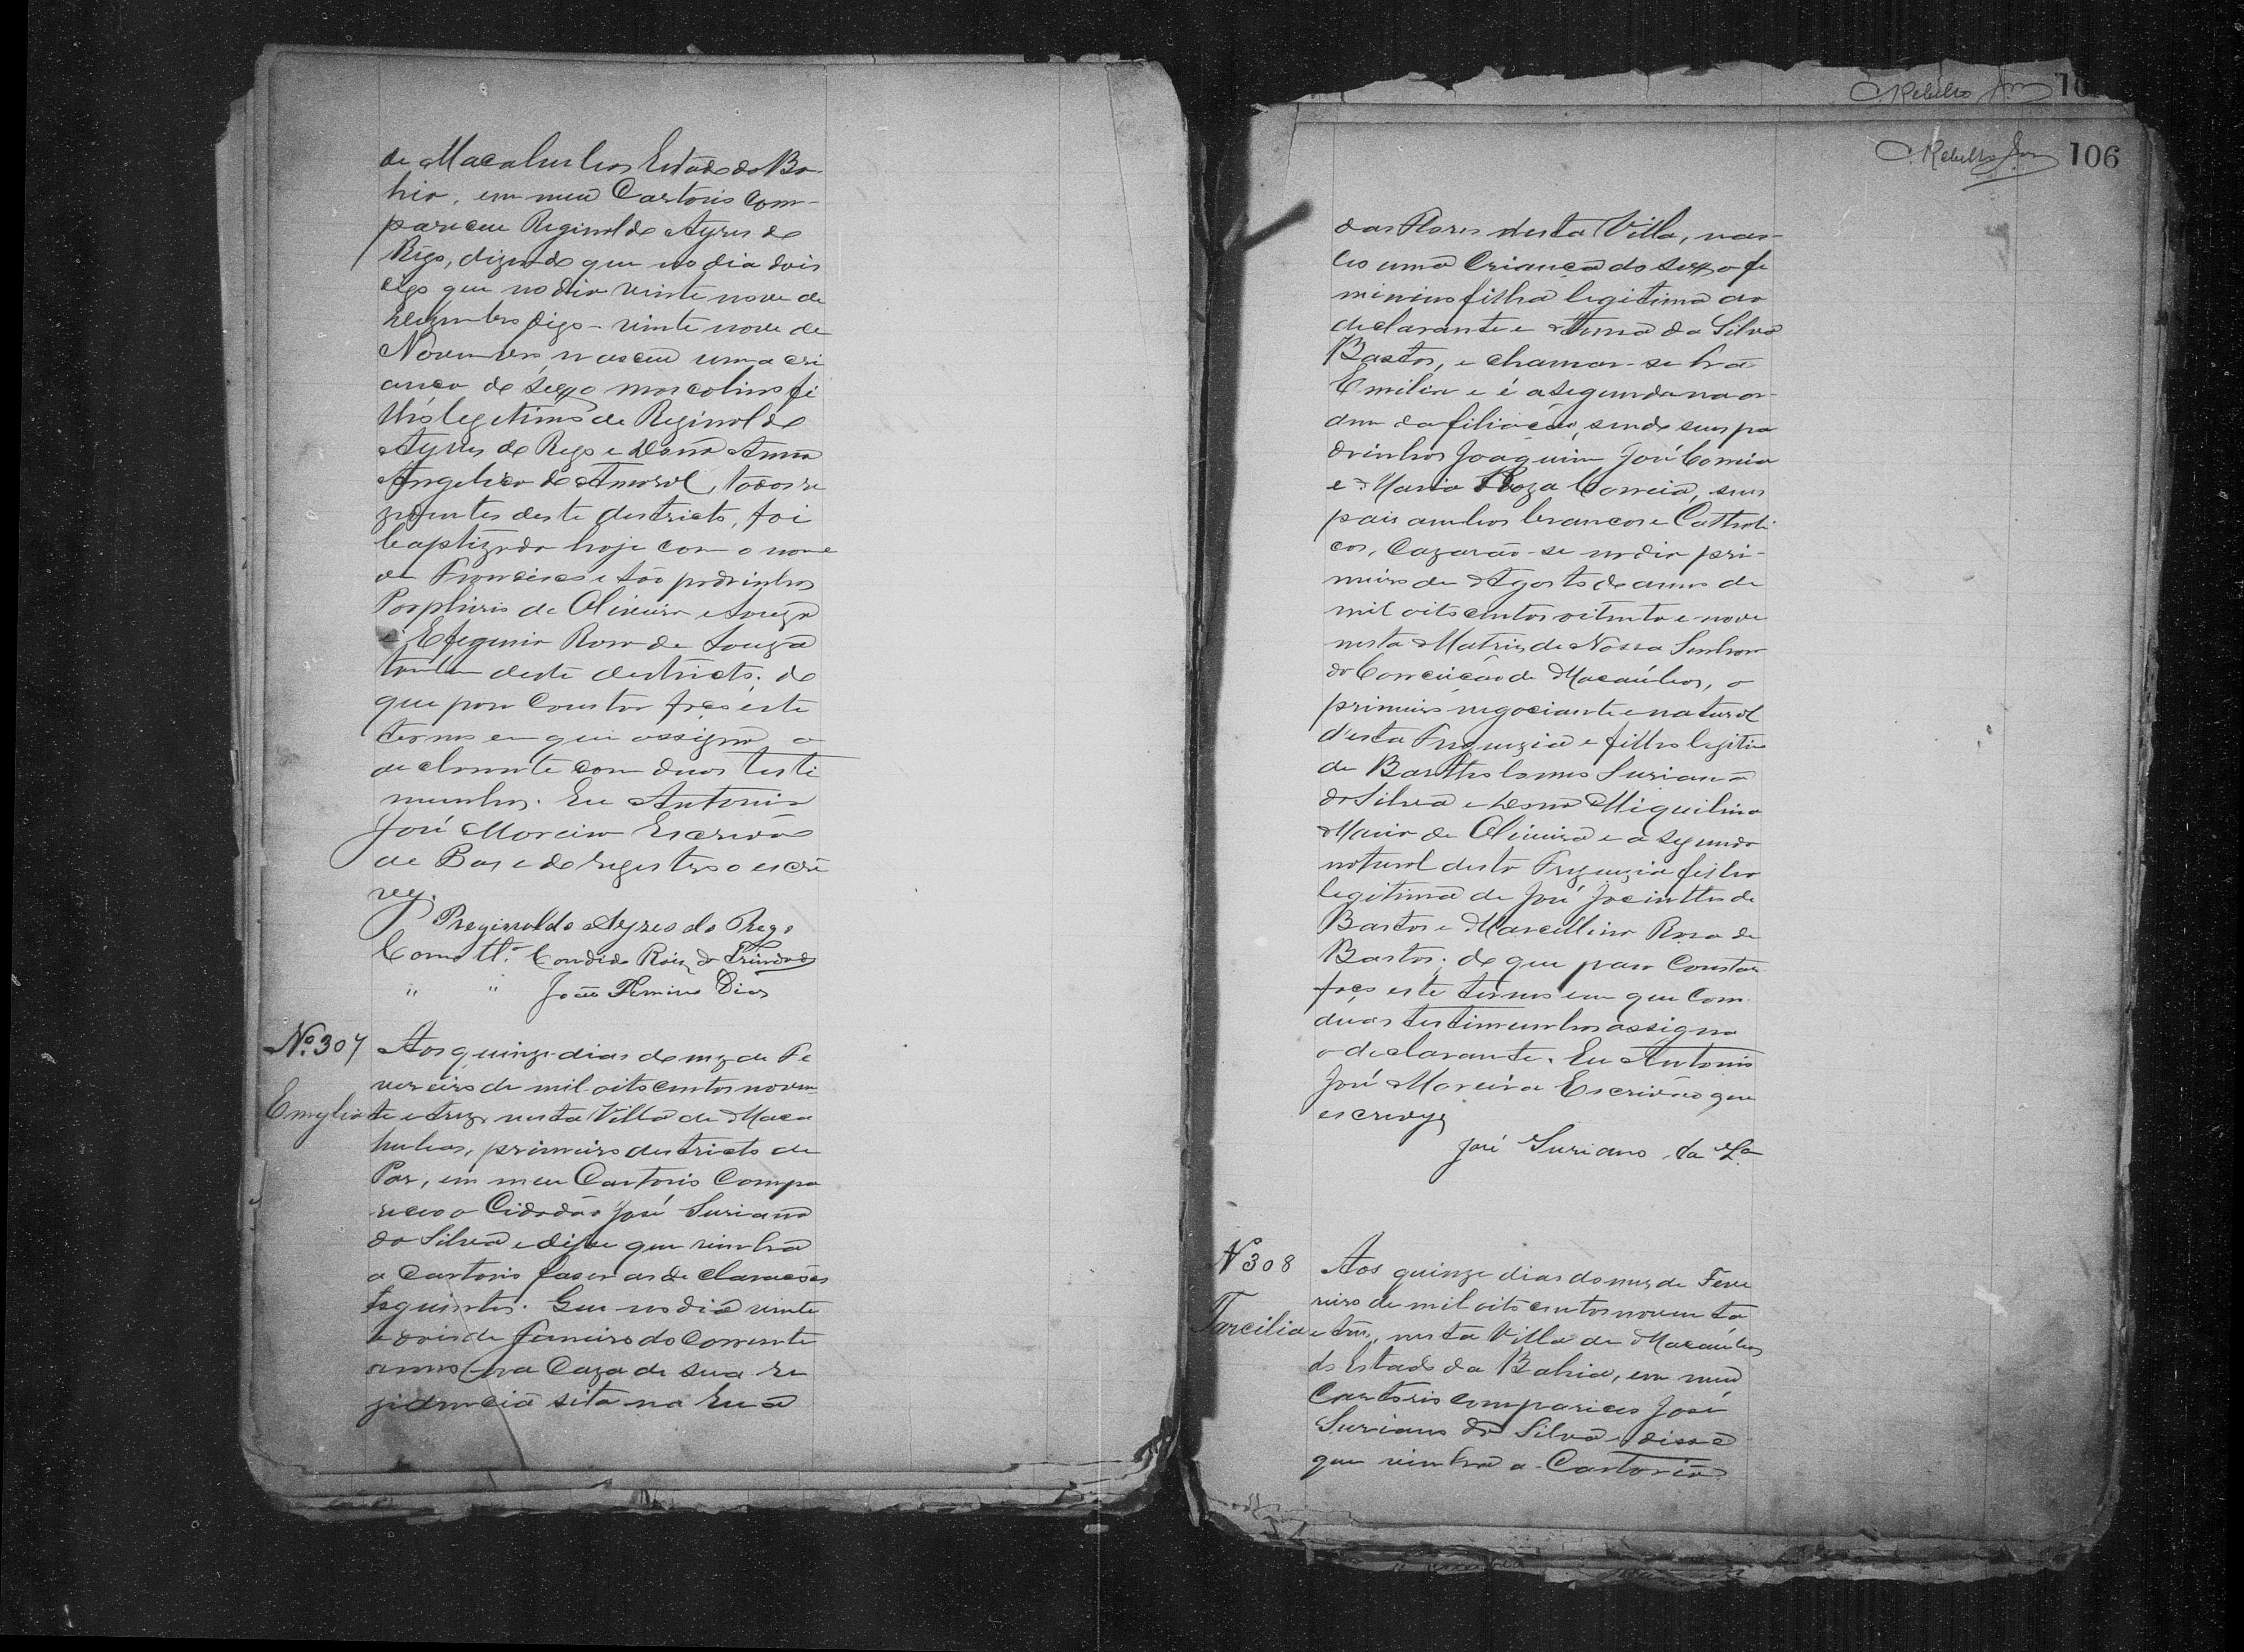 de Macahubas Estado da Ba-
hia, em meu Cartorio Com-
pareceu Reginoldo Ayres do
Rego, dizendo que no dia dois
digo que no dia vinte nove de
Dezembro digo - vinte nove de
Novembro nasceu uma cri
ança do sexo mascolino fi
lho legitimo de Reginoldo
Ayres do Rego e Dona Anna
Angelica do Amaral, todos re
zidentes deste destricto, foi
baptizado hoje com o nome
de Francisco e são padrinhos
Porphirio de Oliveira e Souza
e Efigenia Rosa de Souza
tambem deste destricto; do
que para Constar faço este
termo em que assigna o
declarante com duas teste
munhas. Eu Antonio
José Moreira Escrivão
de Paz e do registro o escre
vy.
Reginoldo Ayres do Rego
Como tta. Candido Roiz da Trindade
" " João Firmino Dias
No. 307 Aos quinze dias do mez de Fe
vereiro de mil oitocentos noven
Emylia ta e trez nesta Villa de Maca
hubas, primeiro destricto de
Paz, em meu Cartorio Compa
receo o Cidadão José Suriano
da Silva e disse que vinha
a Cartorio faser as declarações
seguintes. Que no dia vinte
e dois de Janeiro do Corrente
anno na Caza de sua re
zidencia sita na Rua
C. Rebello Jor 10
C. Rebello Jor 106
das Flores desta Villa, nas-
ceo uma Criança do sexo fe
minino filha legitima do
declarante e Anna da Silva
Bastos, e chamar-se ha
Emilia e é a segunda na or-
dem da filiação, sendo seus pa
drinhos Joaquim José Correia
e Maria Roza Correia, seus
pais ambos brancos e Catholi
cos, Cazarão-se no dia pri-
meiro de Agosto do anno de
mil oitocentos oitenta e nove
nesta Matriz de Nossa Senhora
da Conceição de Macaúbas, o
primeiro negociante e natural
d'esta Freguezia e filho legitimo
de Bartholomeo Suriano
da Silva e Dona Miquilina
Maria de Oliveira e a segunda
natural desta Freguezia filha
legitima de José Jacintho de
Bastos e Marcellina Rosa de
Bastos; do que para Constar
faço este termo em que Com
duas testimunhas assigna
o declarante. Eu Antonio
José Moreira Escrivão que
escrevy
José Suriano da Sa
N 308 Aos quinze dias do mez de Feve
reiro de mil oito centos noventa
Tarcilia e tres, nesta Villa de Macaúbas
do Estado da Bahia, em meu
Cartorio compareceo José
Suriano da Silva e disse
que vinha a Cartorio